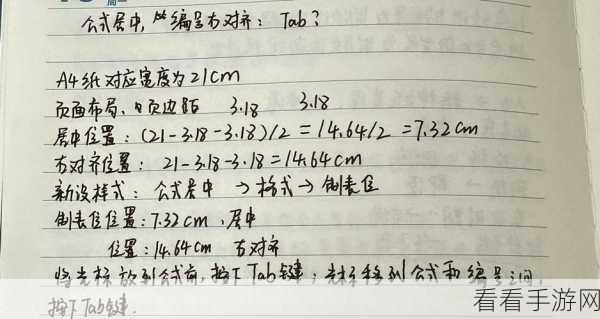 公式居中,编号右对齐:Tab?
A4纸对应宽度为21cm
页面布局、页边距 3.18 3.18
居中位置:(21-3.18-3.18)/2=14.64/2=7.32cm
右对齐位置:21-3.18-3.18=14.64cm
新设样式:公式居中→格式→制表位
制表位位置:7.32cm,居中
位置:14.64cm 右对齐
将光标放到公式前,按下Tab键;光标移到公式和编号之间,
按下Tab键.
看看手游网